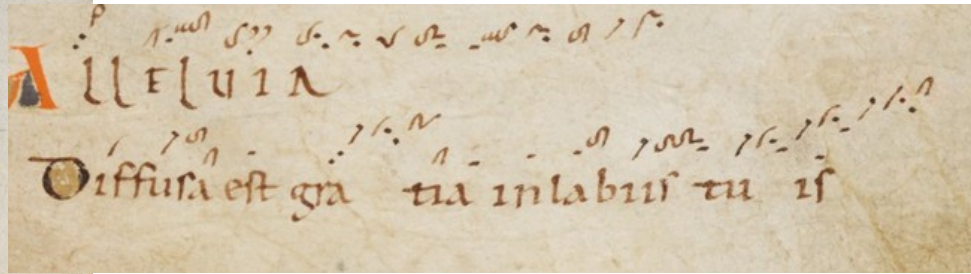 ALLELUIA
Diffusa est gra tia in labiis tu is